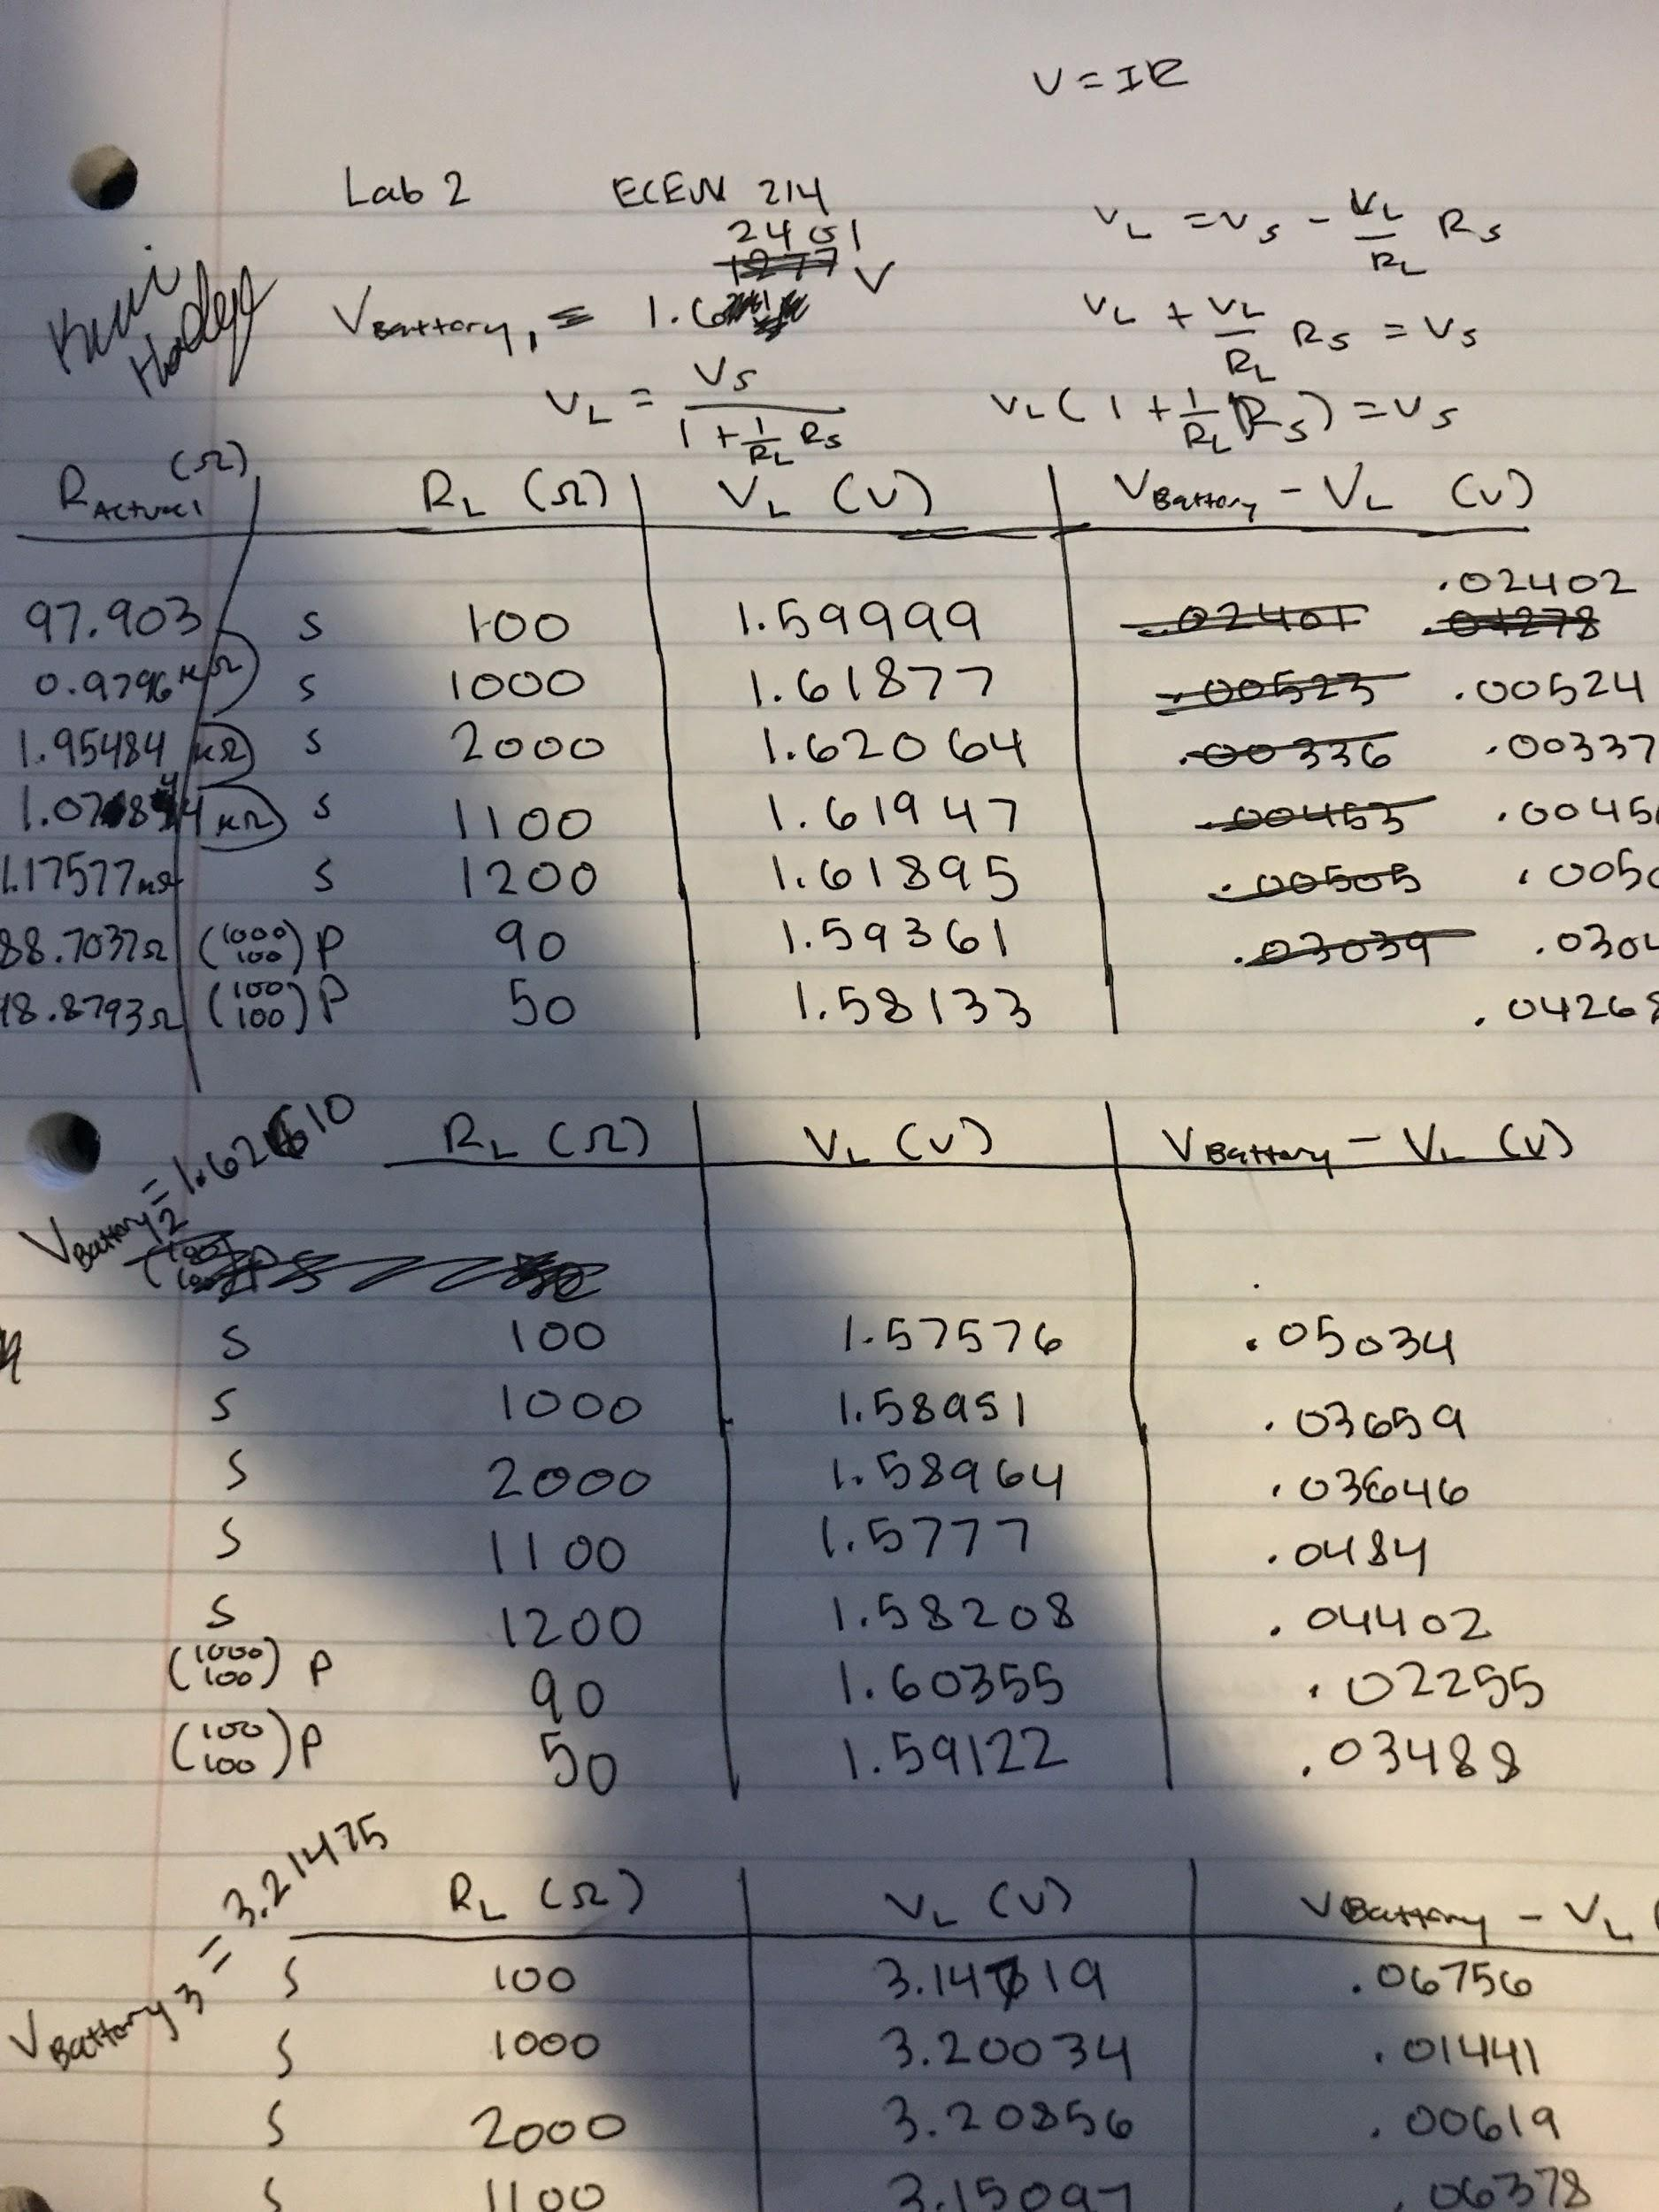 V = IR
Lab 2 ECEN 214
V_L = V_S - V_L/R_L R_S
2401
1277 V
V_Battery, = 1.6
V_L + V_L/R_L R_S = V_S
V_L = V_S / (1 + 1/R_L R_S)
V_L (1 + 1/R_L R_S) = V_S
R_Actual (Ω) R_L (Ω) V_L (V) V_Battery - V_L (V)
.02402
97.903 S 100 1.59999 .02401 .01278
0.9796 kΩ S 1000 1.61877 .00523 .00524
1.95484 kΩ S 2000 1.62064 .00336 .00337
kΩ S 1100 1.61947 .00453 .0045
1.17577 kΩ S 1200 1.61895 .00505 .005
88.7037Ω (1000 100) P 90 1.59361 .03039 .030
48.8793Ω (100 100) P 50 1.58133 .04268
V_Battery 2 =
R_L (Ω) V_L (V) V_Battery - V_L (V)
S 100 1.57576 .05034
S 1000 1.58951 .03659
S 2000 1.58964 .03646
S 1100 1.5777 .0484
S 1200 1.58208 .04402
(1000 100) P 90 1.60355 .02255
(100 100) P 50 1.59122 .03488
V_Battery 3 = 3.21475
R_L (Ω) V_L (V) V_Battery - V_L (
S 100 3.14719 .06756
S 1000 3.20034 .01441
S 2000 3.20856 .00619
S 1100 3.15097 .06378